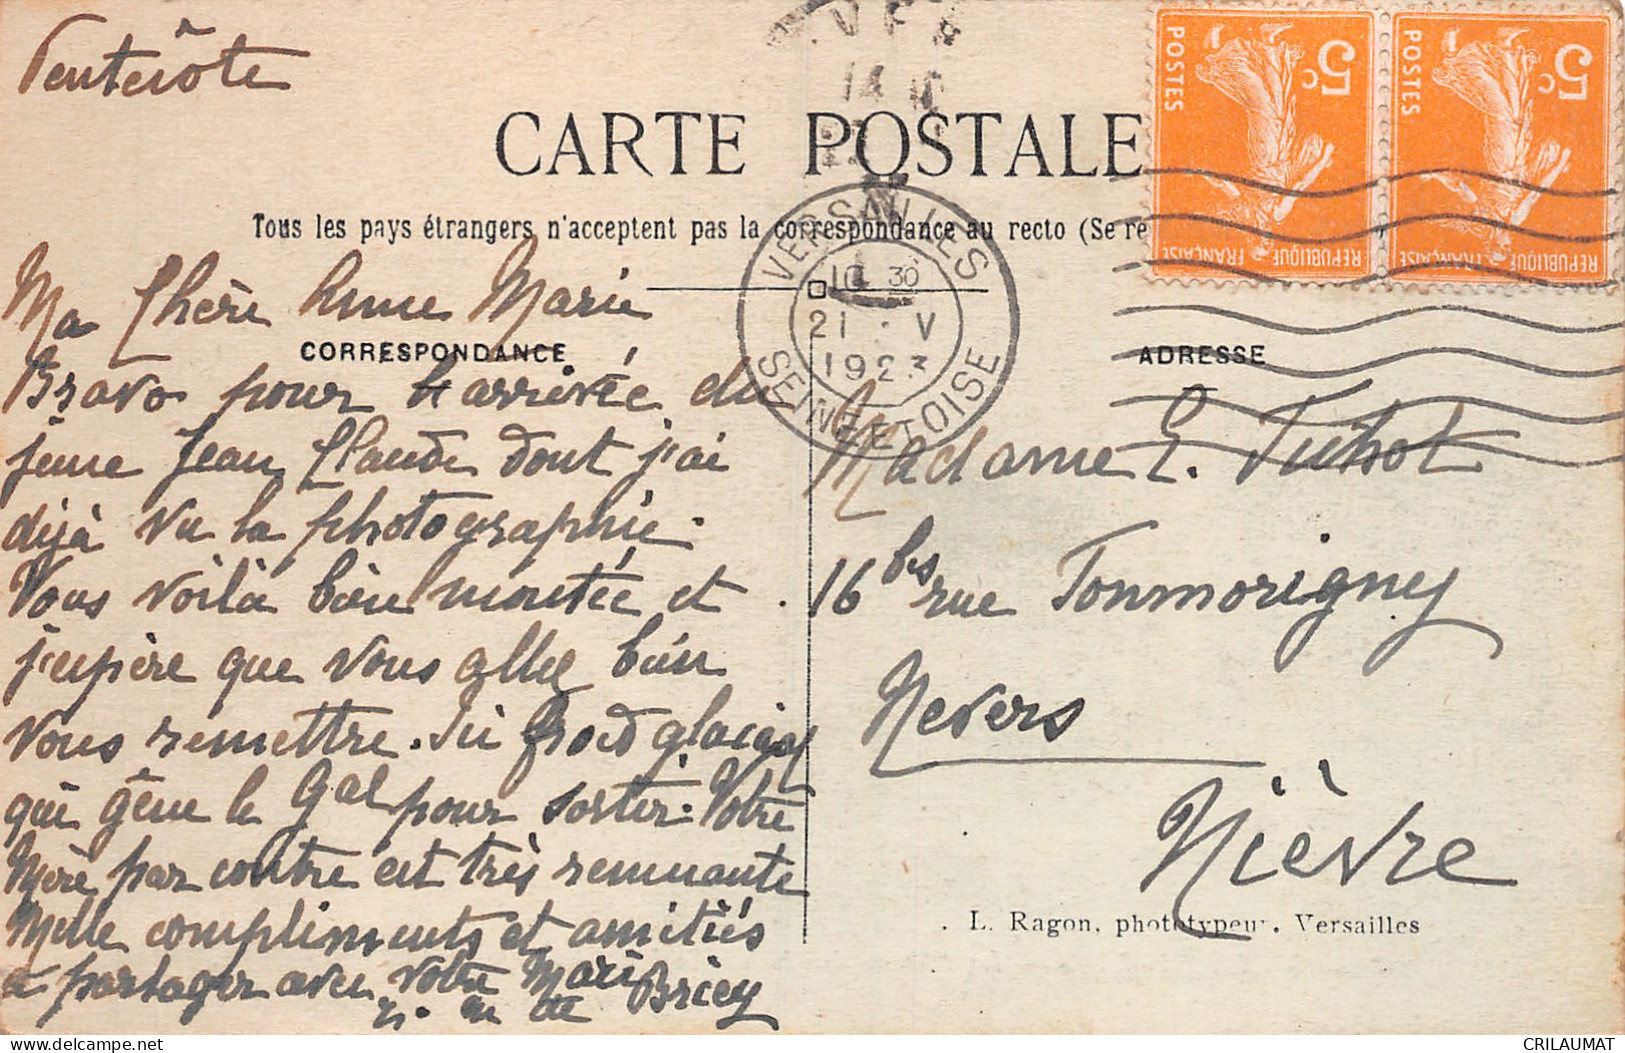 Pentecôte
CARTE POSTALE
Tous les pays étrangers n'acceptent pas la correspondance au recto (Se re
CORRESPONDANCE
ADRESSE
5c
POSTES
REPUBLIQUE FRANÇAISE
5c
POSTES
REPUBLIQUE FRANÇAISE
VERSAILLES
10 30
21 · V
1923
SEINE ET OISE
Ma Chère Anne Marie
Bravo pour l'arrivée du
jeune Jean Claude dont j'ai
déjà vu la photographie.
Vous voilà bien montée et
j'espère que vous allez bien
vous remettre. Ici froid glacial
qui gêne le Gal pour sortir. Votre
Mère par contre est très remuante
Mille compliments et amitiés
à partager avec votre Mari
de Bricy
Madame E. Tuhot
16 bis rue Tonmorigney
Nevers
Nièvre
L. Ragon, phototypeur, Versailles
CRILAUMAT